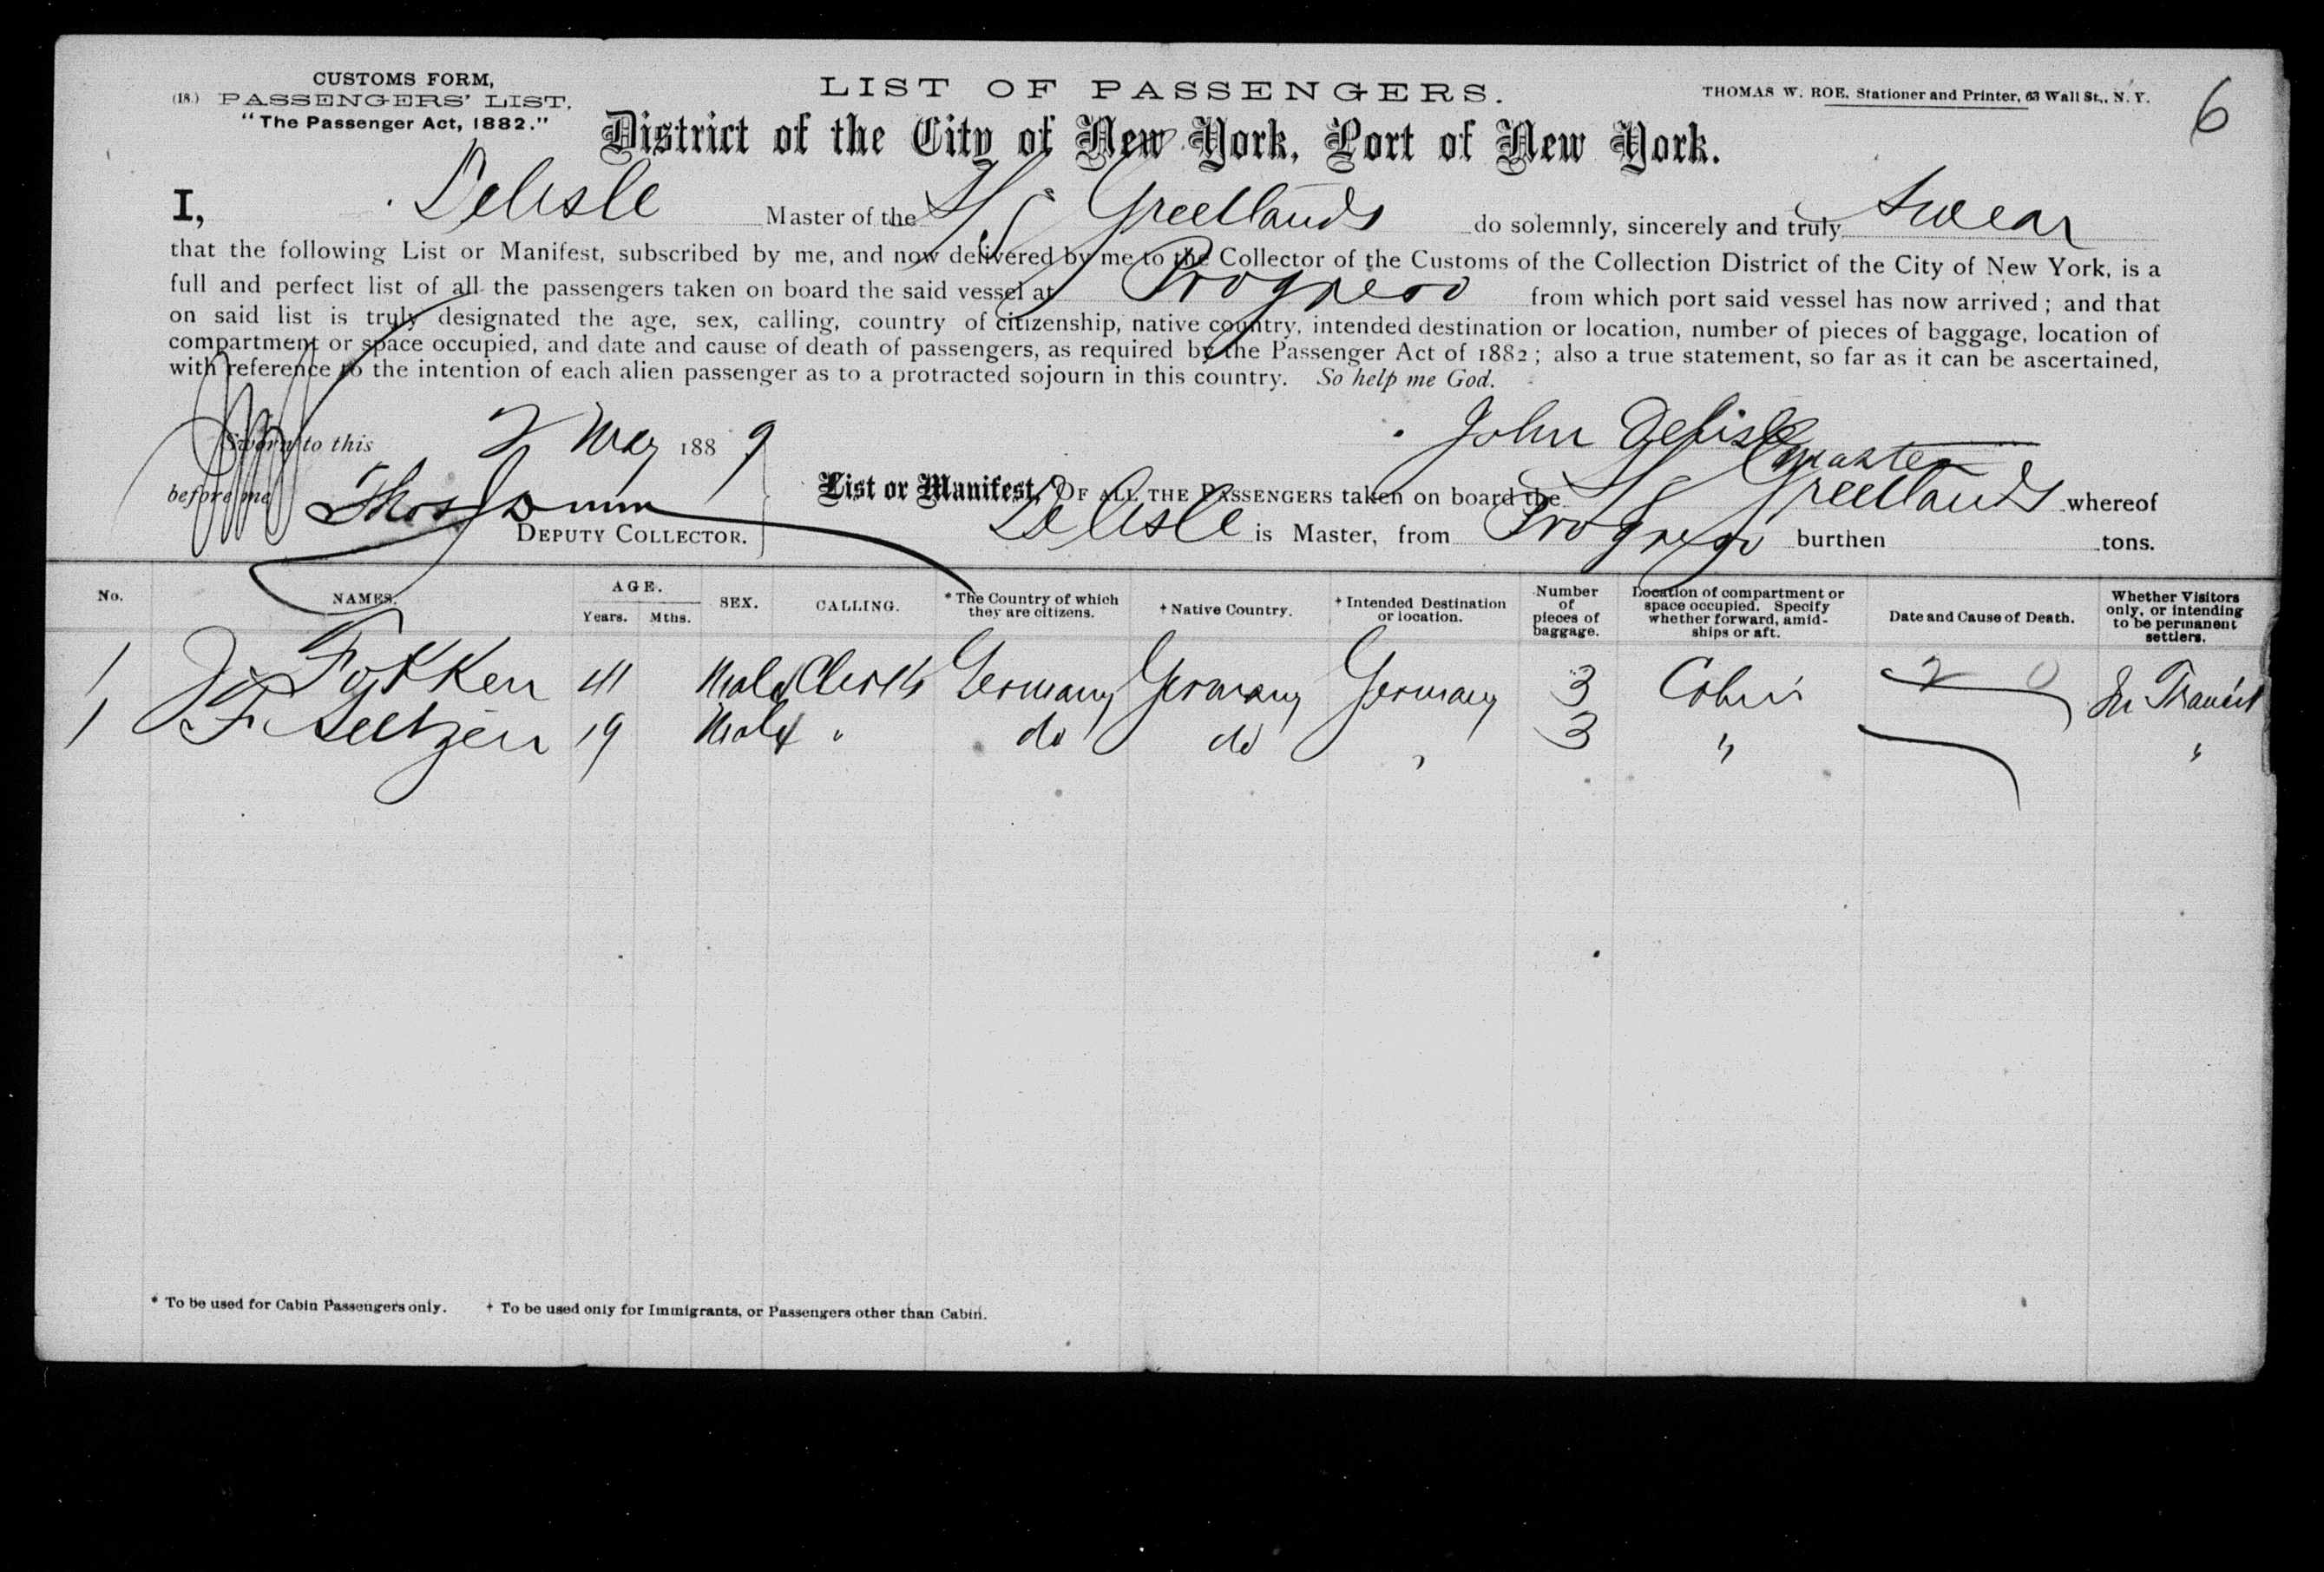 CUSTOMS FORM,
(18.) PASSENGERS' LIST.
"The Passenger Act, 1882."
LIST OF PASSENGERS.
THOMAS W. ROE, Stationer and Printer, 63 Wall St., N. Y.
6
District of the City of New York, Port of New York.
I, Delisle Master of the SS Greetlands do solemnly, sincerely and truly Swear
that the following List or Manifest, subscribed by me, and now delivered by me to the Collector of the Customs of the Collection District of the City of New York, is a
full and perfect list of all the passengers taken on board the said vessel at Progreso from which port said vessel has now arrived; and that
on said list is truly designated the age, sex, calling, country of citizenship, native country, intended destination or location, number of pieces of baggage, location of
compartment or space occupied, and date and cause of death of passengers, as required by the Passenger Act of 1882; also a true statement, so far as it can be ascertained,
with reference to the intention of each alien passenger as to a protracted sojourn in this country. So help me God.
Sworn to this 2 May 1889
John Delisle
master
before me Thos
DEPUTY COLLECTOR.
List or Manifest, OF ALL THE PASSENGERS taken on board the SS Greetlands whereof
Delisle is Master, from Progreso burthen tons.
No. NAMES. AGE. Years. Mths. SEX. CALLING. * The Country of which they are citizens. † Native Country. † Intended Destination or location. Number of pieces of baggage. Location of compartment or space occupied. Specify whether forward, amidships or aft. Date and Cause of Death. Whether Visitors only, or intending to be permanent settlers.
1 Fokken 41 Male Clerk Germany Germany Germany 3 Cabin In Transit
1 F. Seetzen 19 Male " do do " 3 " "
* To be used for Cabin Passengers only. † To be used only for Immigrants, or Passengers other than Cabin.